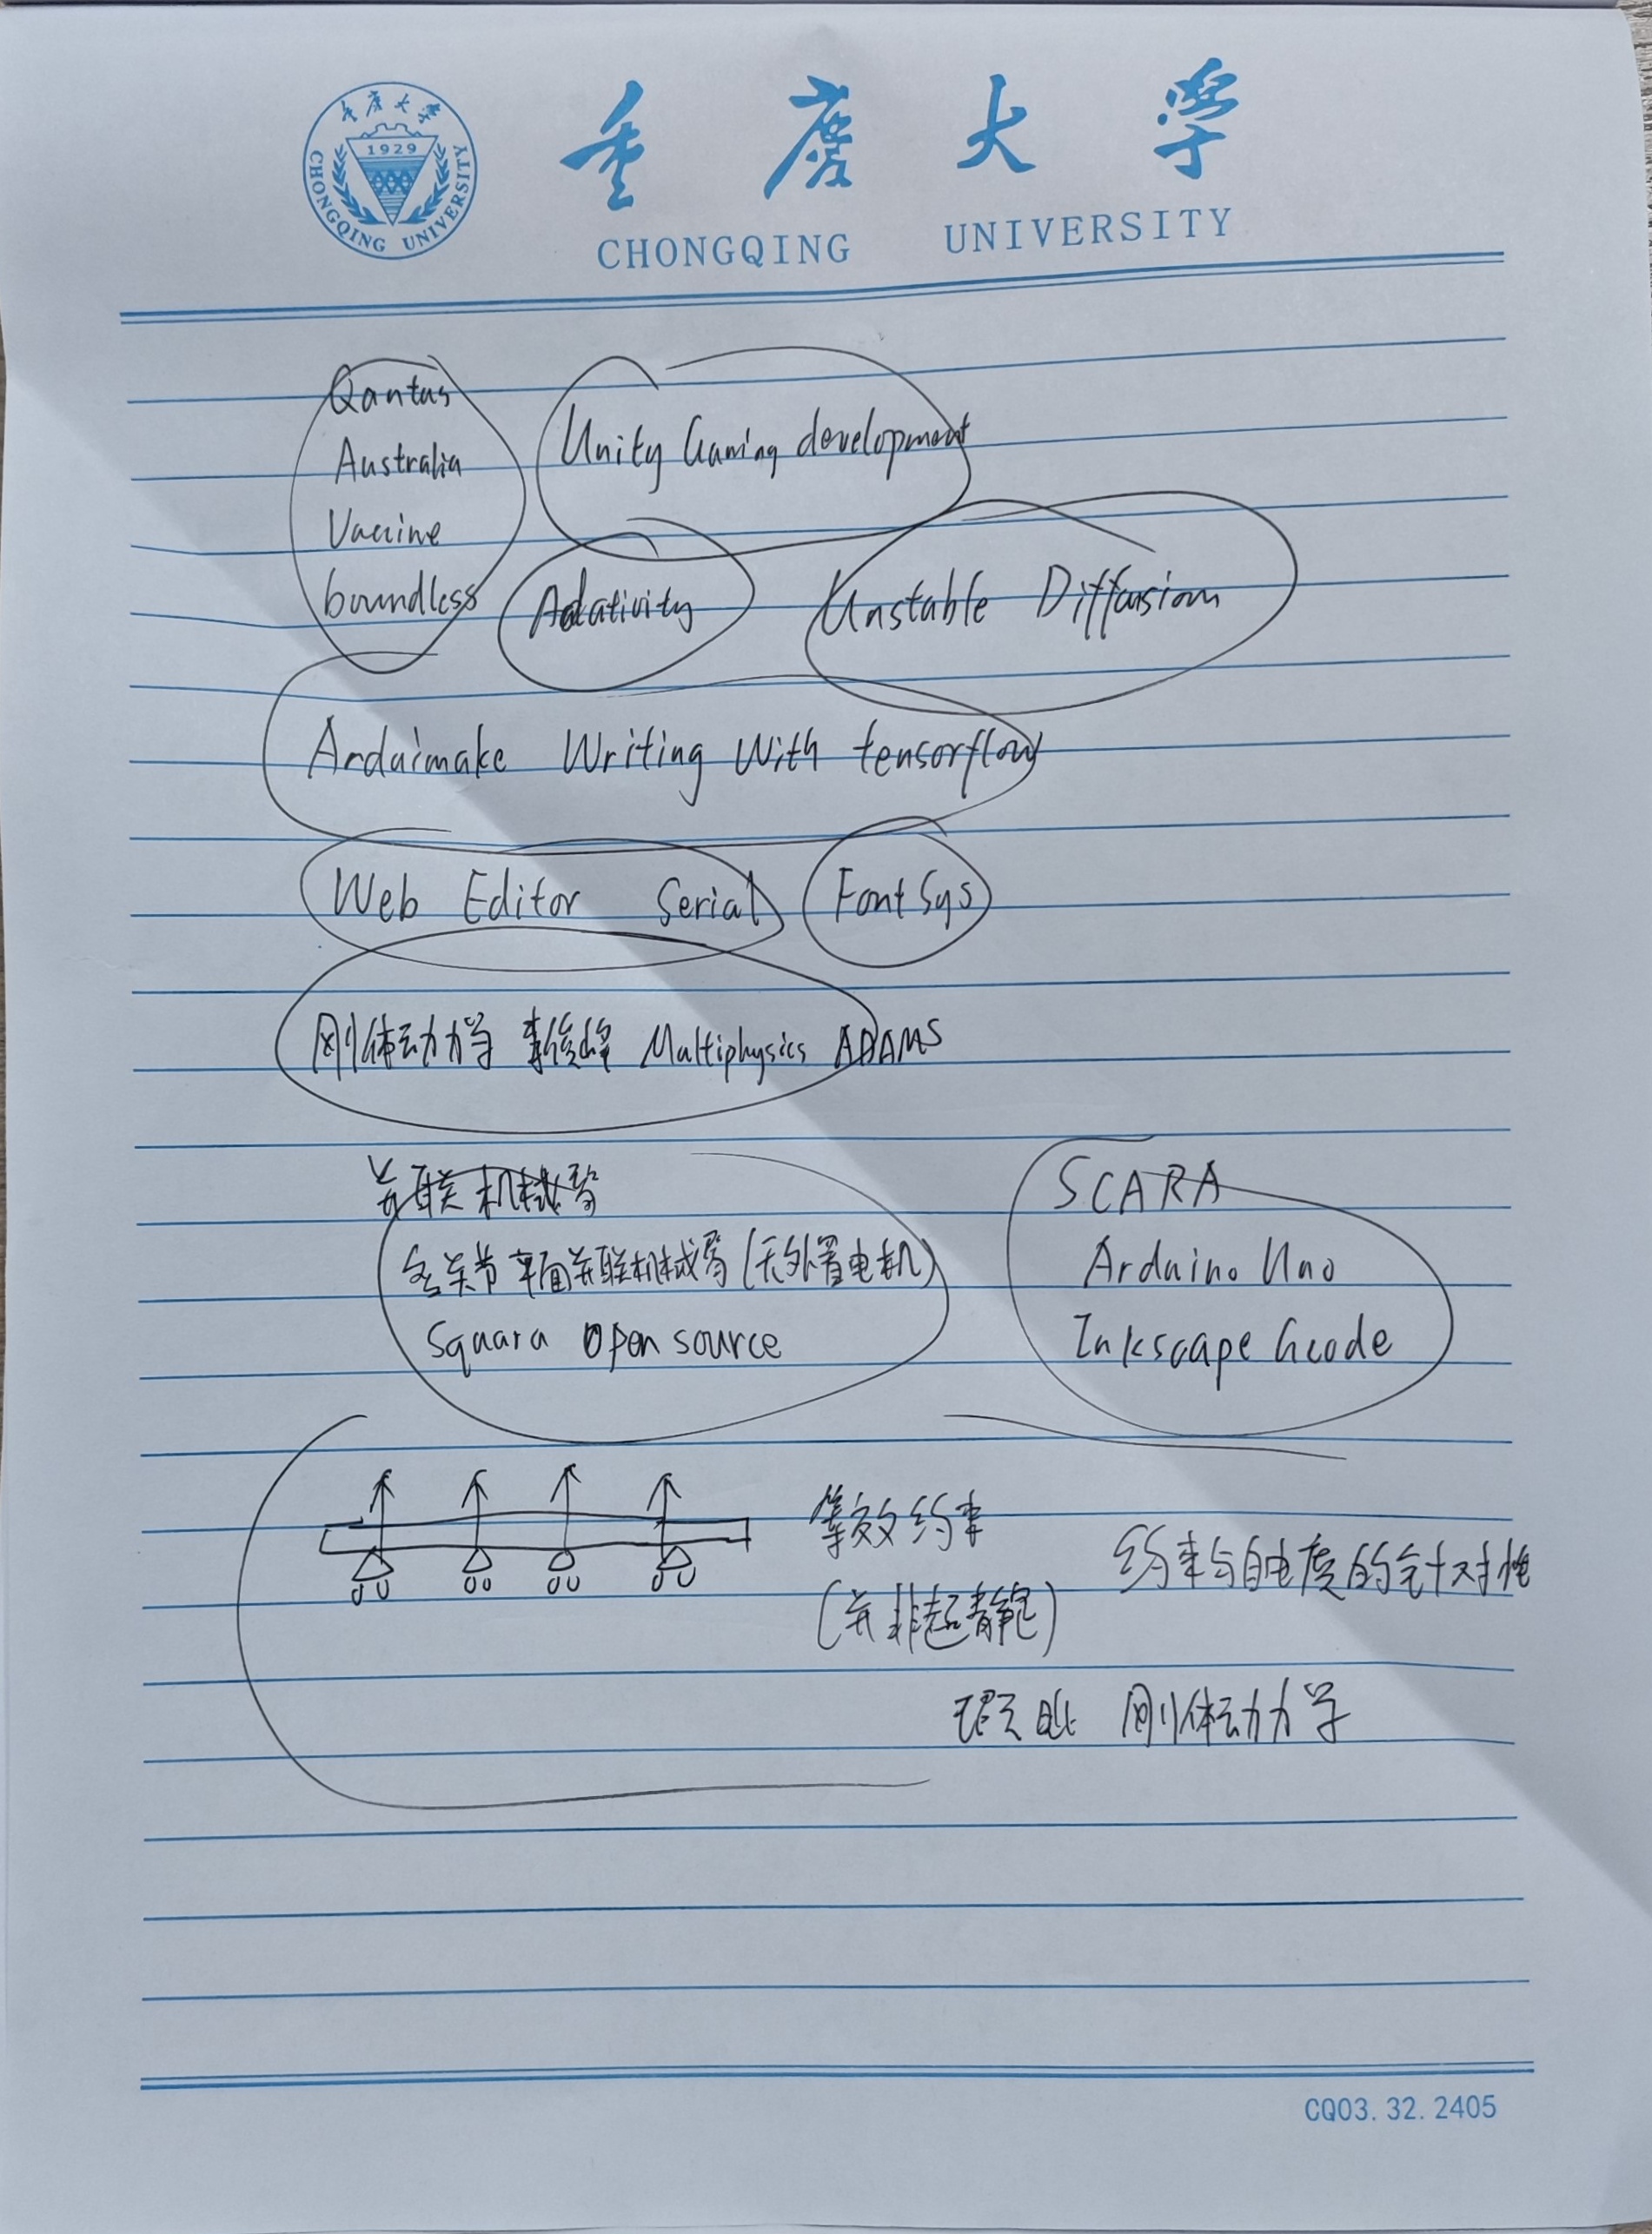 重庆大学
CHONGQING UNIVERSITY
重庆大学
1929
CHONGQING UNIVERSITY
Qantas
Australia
Vaccine
boundless
Unity Gaming development
Unstable Diffusion
Writing With tensorflow
Web Editor Serial
Font Sys
刚体动力学 李俊峰 Multiphysics ADAMS
并联机械臂
关节平面并联机械臂(无外置电机)
Squara Open source
SCARA
Arduino Uno
Inkscape Gcode
等效约束
(并非超静定)
约束与自由度的针对性
刚体动力学
CQ03.32.2405